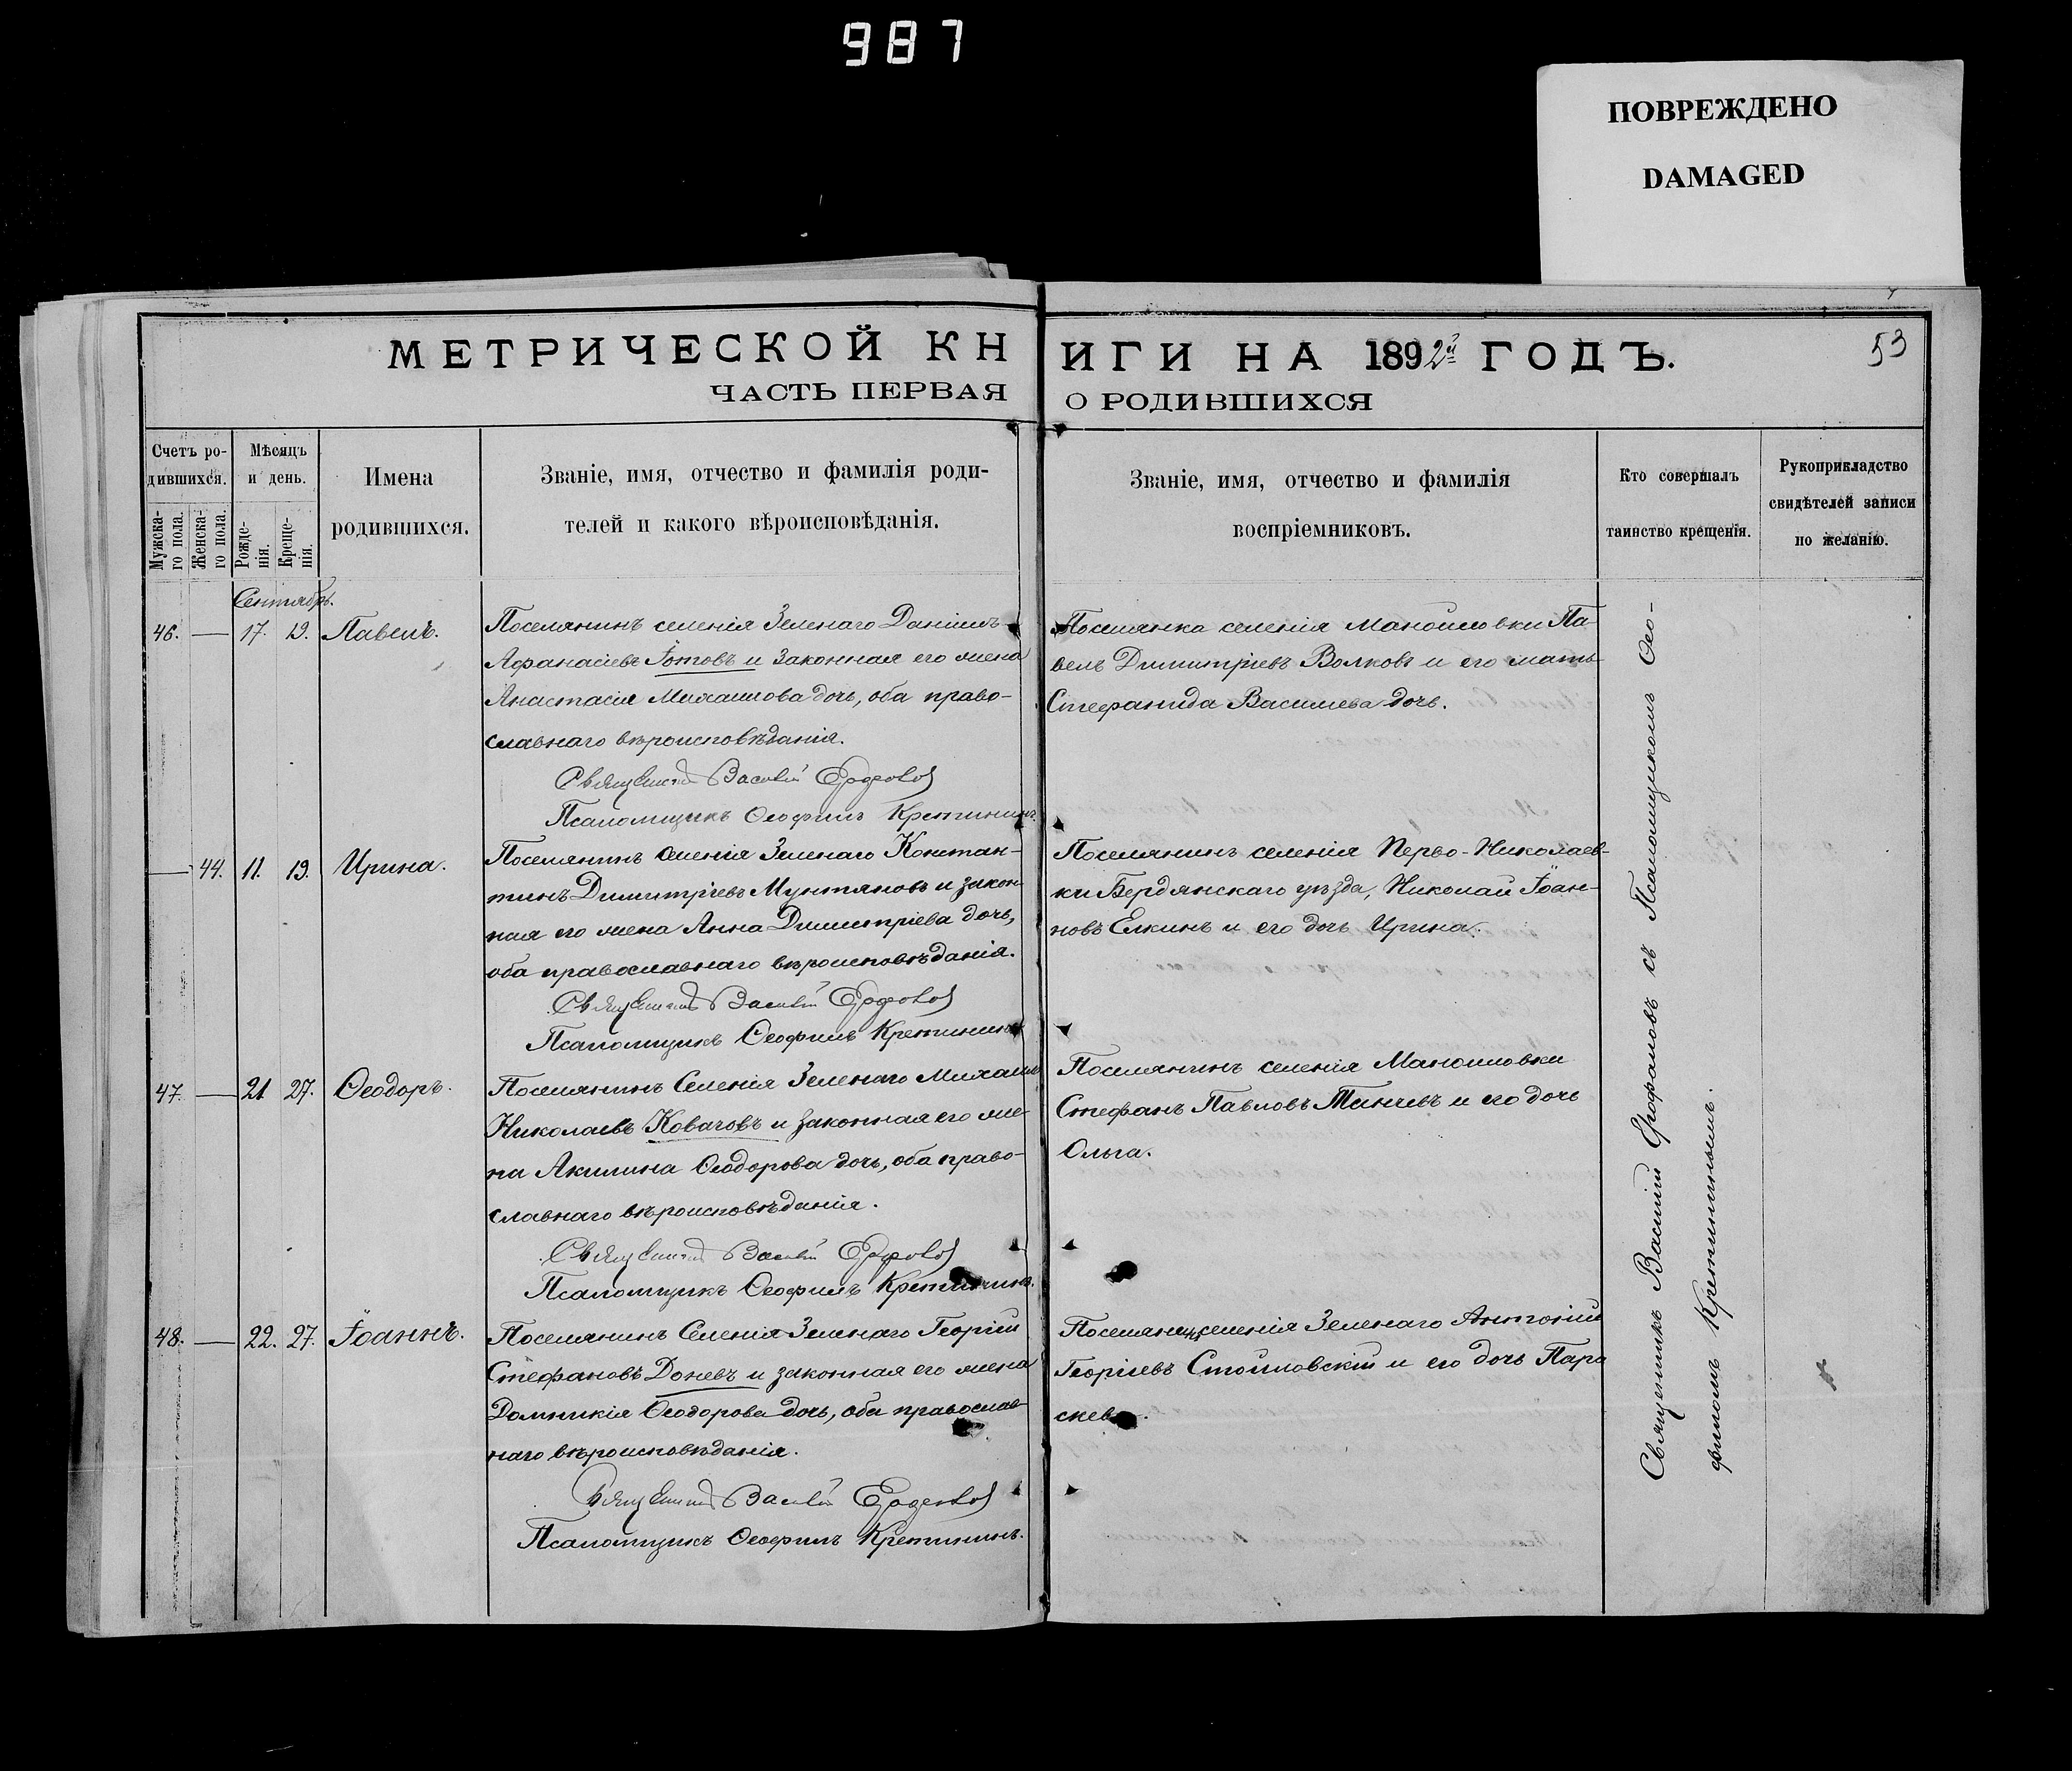 987
ПОВРЕЖДЕНО
DAMAGED
53
МЕТРИЧЕСКОЙ КНИГИ НА 1892й ГОДЪ.
ЧАСТЬ ПЕРВАЯ О РОДИВШИХСЯ
Счетъ ро-
дившихся.
Мужска-
го пола.
Женска-
го пола.
Мѣсяцъ
и день.
Рожде-
нія.
Креще-
нія.
Имена
родившихся.
Званіе, имя, отчество и фамилія роди-
телей и какого вѣроисповѣданія.
Званіе, имя, отчество и фамилія
воспріемниковъ.
Кто совершалъ
таинство крещенія.
Рукоприкладство
свидѣтелей записи
по желанію.
Сентябрь.
46. — 17. 19. Павелъ.
Поселянинъ селенія Зеленаго Даніилъ
Афанасіевъ Іотовъ и законная его жена
Анастасія Михаилова дочь, оба право-
славнаго вѣроисповѣданія.
Священникъ Василій Ерофѣевъ
Псаломщикъ Ѳеофилъ Кретининъ.
Поселянка селенія Маноиловки Па-
велъ Димитріевъ Волковъ и его мать
Стефанида Васильева дочь.
— 44. 11. 19. Ирина.
Поселянинъ селенія Зеленаго Констан-
тинъ Димитріевъ Мунтяновъ и закон-
ная его жена Анна Димитріева дочь,
оба православнаго вѣроисповѣданія.
Священникъ Василій
Псаломщикъ Ѳеофилъ Кретининъ
Поселянинъ селенія Перво-Николаев-
ки Бердянскаго уѣзда, Николай Іоан-
новъ Елкинъ и его дочь Ирина.
47. — 21 27. Ѳеодоръ.
Поселянинъ Селенія Зеленаго Михаилъ
Николаевъ Ковачовъ и законная его же-
на Акилина Ѳеодорова дочь, оба право-
славнаго вѣроисповѣданія.
Священникъ Василій
Псаломщикъ Ѳеофилъ Кретининъ.
Поселянинъ селенія Маноиловки
Стефанъ Павловъ Танчевъ и его дочь
Ольга.
48. — 22. 27. Іоаннъ.
Поселянинъ Селенія Зеленаго Георгій
Стефановъ Доневъ и законная его жена
Домникія Ѳеодорова дочь, оба православ-
наго вѣроисповѣданія.
Священникъ Василій
Псаломщикъ Ѳеофилъ Кретининъ.
селенія Зеленаго Антоній
Георгіевъ Стоиловскій и его дочь Пара
скев
Священникъ Василій съ Псаломщикомъ Ѳео-
филомъ Кретининымъ.